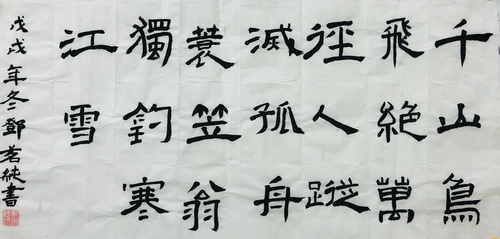 千山鳥
飛絕萬
徑人蹤
滅孤舟
蓑笠翁
獨釣寒
江雪
戊戌年冬鄧書